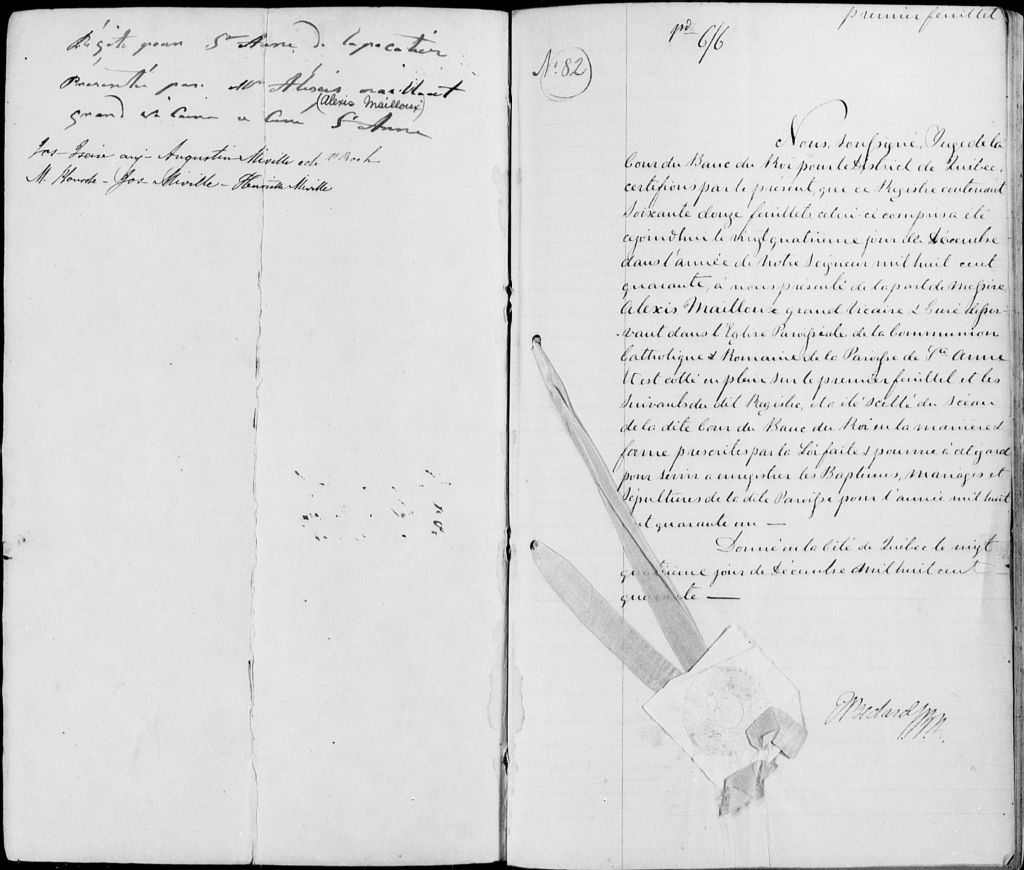 Régitre pour Ste Anne de lapocatier
Présenté par Mr Alexis maillout
(Alexis Mailloux)
grand vicaire Curé Ste Anne
Augustin Miville St Roch
Jos - Miville - Henriette Miville
premier feuillet
prd 6/6
No. 82
Nous, Soussigné, Juge de la
Cour du Banc du Roi pour le District de Québec,
certifions par le présent, que ce Registre contenant
Soixante douze feuillets, celui-ci compris a été
cejourd'hui le vingt quatrieme jour de Décembre
dans l'année de Notre Seigneur mil huit cent
quarante, à nous présenté de la part de Messire
Alexis Mailloux grand Vicaire & Curé desser-
-vant dans l'Eglise Paroissiale de la Communion
Catholique & Romaine de la Paroisse de Ste Anne
Il est cotté en plein sur le premier feuillet et les
Suivants du dit Registre, et a été Scellé du Sceau
de la dite Cour du Banc du Roi en la maniere &
forme prescrites par la Loi faite & pourvue à cet égard
pour servir a enregistrer les Baptêmes, Mariages et
Sépultures de la dite Paroisse pour l'année mil huit
cent quarante un —
Donné en la Cité de Québec le vingt
quatrieme jour de Décembre Mil huit cent
quarante —
Bedard